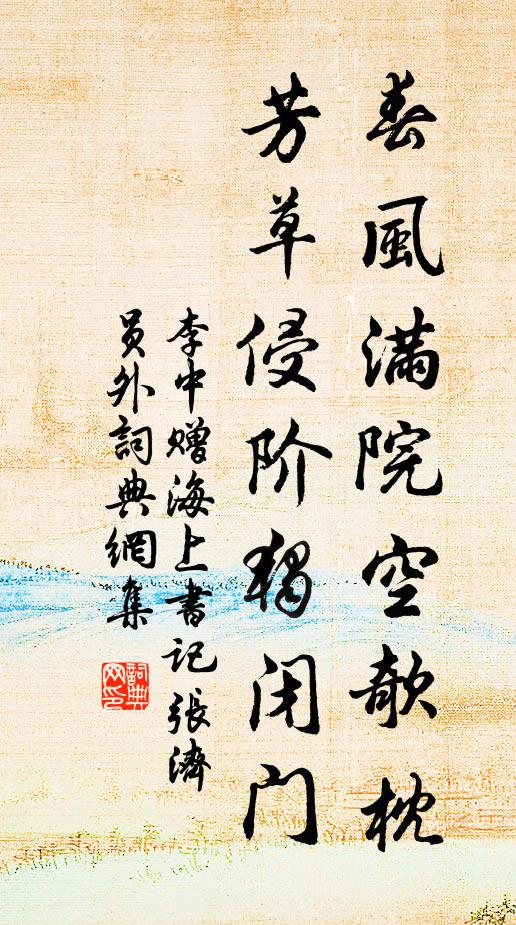 春風滿院空欹枕
芳草侵阶獨闭门
李中赠海上書记張濟
员外詞典網集
詞典网印